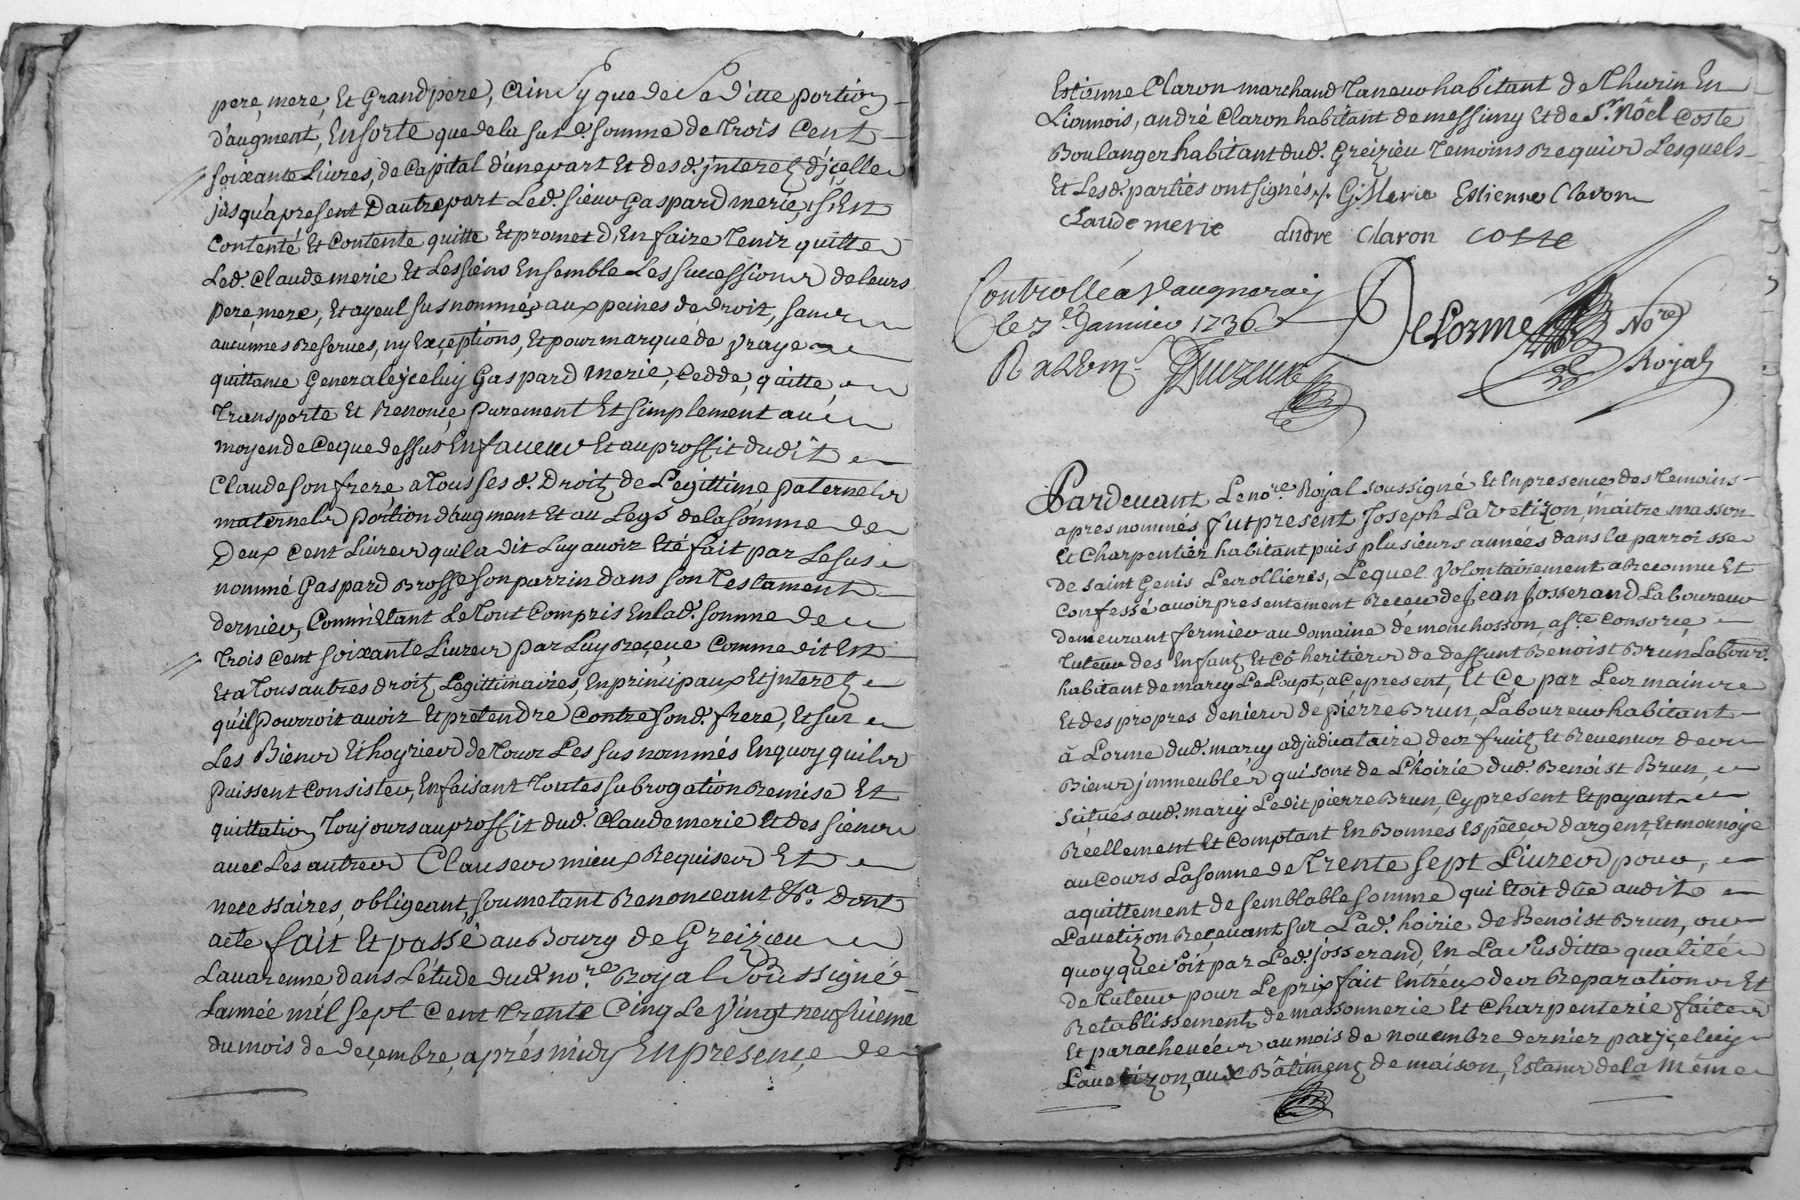 pere, mere, Et Grand pere, Ainsy que de Sa ditte portion
d'augment, Ensorte que de la sus d. somme de Trois Cent
soixante Livres, de Capital d'une part Et des d. jnteretz d'jcelle
jusqu'a present D'autre part Led. sieur Gaspard merie, s'Est
Contenté Et Contente quitte Et promet d'En faire Tenir quitte
Led. Claude merie Et Les siens Ensemble Les successions de leurs
pere, mere, Et ayeul sus nommés aux peines de droit, sans
aucunnes Reserves, ny Exceptions, Et pour marque de vraye
quittance Generale jceluy Gaspard merie, Cedde, quitte,
Transporte Et Renonce purement Et simplement au
moyen de Ce que dessus En faveur Et au proffit dudit
Claude son frere, a Tous ses d. Droitz de Legittime paternels
maternels portion d'augment Et au Legs de la somme de
Deux Cent Livres quil a dit Luy avoir Eté fait par Le sus
nommé Gaspard Brosse son parrin dans son Testament
dernier, Comm'Etant Le Tout Compris En lad. somme de
Trois Cent soixante Livres par Luy Reçeue Comme dit Est
Et a Tous autres droitz Legittimaires, En principaux Et jnteretz
qu'il Pourroit avoir Et pretendre Contre son d. frere, Et sur
Les Biens Et hoyries de Tous Les sus nommés En quoy quils
Puissent Consister, En faisant Toutes subrogation Remise Et
quittation Toujours au proffit dud. Claude merie Et des siens
avec Les autres Clauses mieux Requises Et
necessaires, obligeant, soumetant Renonceant &a. Dont
acte fait Et passé au Bourg de Greizieu
Lavarenne, dans L'étude dud. nore. Royal Soussigné
L'année mil sept Cent Trente Cinq Le Vingt neufvieme
du mois de decembre, aprés midy En presence, de
Estienne Claron marchand Taneur habitant de Thurin En
Lionnois, andré Claron habitant de messimy Et de Sr. Nöel Coste
Boulanger habitant dud. Greizieu Temoins Requis Lesquels
Et Les d. parties ont signés ./. G: Merie Estienne Claron
Claude merie andre Claron coste
Controllé a Vaugneray
le 7e. Janvier 1736
DeLorme Nore
Royal
Pardevant Le nore. Royal soussigné Et En presence des Temoins
apres nommés fut present Joseph La Vetizon, maitre masson
Et Charpentier habitant puis plusieurs années dans la parroisse
de saint Genis Lerollieres, Lequel Volontairement a Reconnu Et
Confessé avoir presentement Reçeu de Jean Josserand Laboureur
demeurant fermier au domaine de monchosson, aste Consorce
Tuteur des Enfantz Et Cô heritiers de deffunt Benoist Brun Labour.
habitant de marcy Le Loup, a Ce present, Et Ce par Les mains
Et des propres deniers de pierre Brun, Laboureur habitant
à Lorme dud. marcy adjudicataire des fruitz Et Revenus des
Biens jmmeubles qui sont de L'hoirie dud. Benoist Brun,
scitués aud. marcy Ledit pierre Brun, Cy present Et payant
Réellement Et Comptant En Bonnes Espêces d'argent, Et monnoÿe
au Cours La somme de Trente sept Livres pour,
aquittement de semblable somme qui Etoit düe audit
Lavetizon Reçevant sur Lad. hoirie de Benoist Brun, ou
quoy que soit par Led. josserand, En La susditte qualité
de Tuteur pour Le prix fait Entreux des Reparations Et
Retablissementz de massonnerie Et Charpenterie faites
Et parachevées au mois de novembre dernier par jceluy
Lavetizon, aux Bâtimentz de maison, Estans de la même